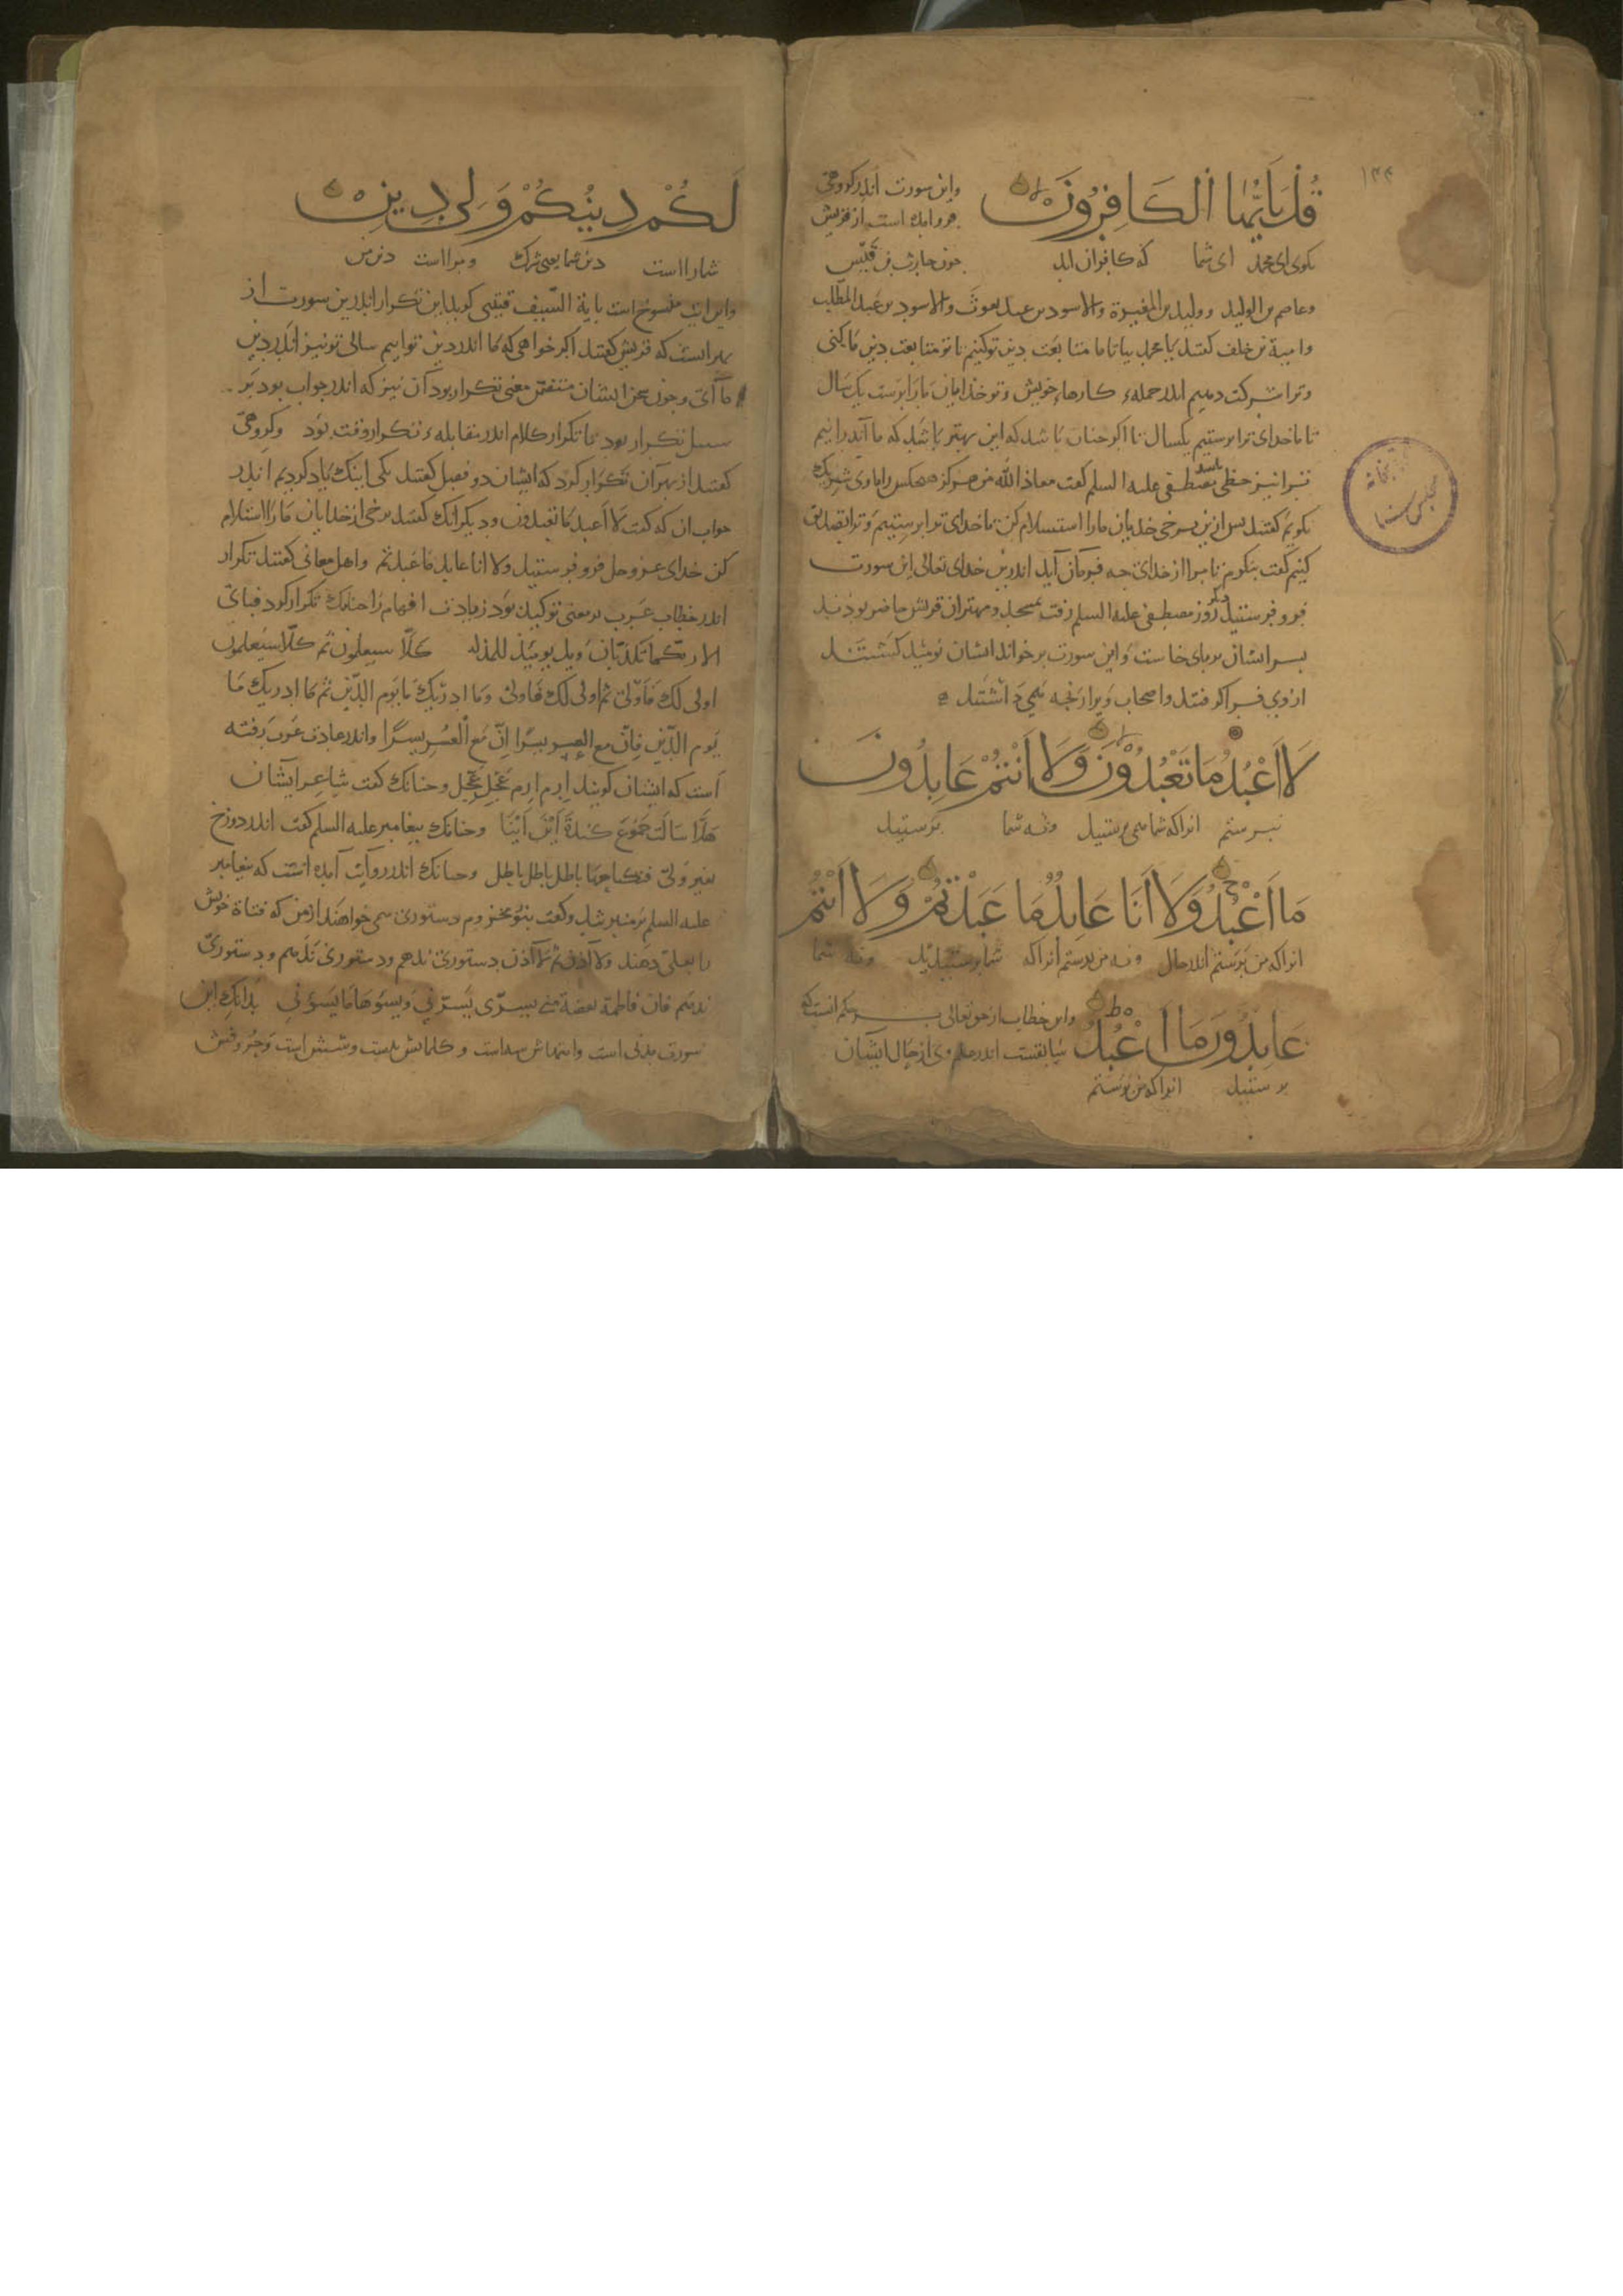 ١٤٤
قُلْ يَا أَيُّهَا الْكَافِرُونَ
واین سورت اندر کروهی
فروآمده است از قریش
بکوی ای محمد ای شما که کافران اید
چون حارث بن قیس
وعاصم بن الولید وولید بن المغیرة والاسود بن عبد یغوث والاسود بن عبد المطّلب
وامیة بن خلف کفتند یا محمد بیا تا ما متابعت دین تو کنیم تا تو متابعت دین ما کنی
وترا شرکت دهیم اندر جمله کارهاء خویش وتو خدایان ما را پرست یک سال
تا ما خدای ترا پرستیم یکسال تا اکر چنان باشد که این بهتر باشد که ما آید برانیم
ترا نیز حظی باشد مصطفی علیه السلم کفت معاذ الله من هرکز هیچ کس را با وی شریک
نکویم کفتند پس ازین برخی خدایان ما را استسلام کن تا خدای ترا پرستیم وترا تصدیق
کنیم کفت بنکرم تا مرا از خدای چه فرمان آید اندرین خدای تعالی این سورت
فرو فرستید دیکر روز مصطفی علیه السلم رفت بمسجد ومهتران قریش حاضر بودند
بر سر ایشان بر پای خاست واین سورت برخواند ایشان نومید کشتند
از وی فرا کرفتند واصحاب ویرا رنجه می داشتند
لَا أَعْبُدُ مَا تَعْبُدُونَ وَلَا أَنْتُمْ عَابِدُونَ
نپرستم انرا که شما می پرستید ونه شما پرستید
مَا أَعْبُدُ وَلَا أَنَا عَابِدٌ مَا عَبَدْتُمْ وَلَا أَنْتُمْ
انرا که من پرستم اندر حال ونه من پرستم انرا که شما پرستیدید ونه شما
عَابِدُونَ مَا أَعْبُدُ
واین خطاب از حق تعالی بر حکم انست که
سابقست اندر علم وی از حال ایشان
پرستید انرا که من پرستم
لَكُمْ دِينُكُمْ وَلِيَ دِينِ
شما راست دین شما یعنی شرک ومراست دین من
واین ایت منسوخ است بایة السّیف قتیبی کوید این تکرار اندرین سورت از
بهر انست که قریش کفتند اکر خواهی که ما اندر دین تو اییم سالی تو نیز اندر دین
ما آی وچون سخن ایشان متضمن معنی تکرار بود آن نیز که اندر جواب بود بر
سبیل تکرار بود تا تکرار کلام اندر مقابله تکرار وقت بود وکروهی
کفتند از بهر آن تکرار کرد که ایشان دو فصل کفتند یکی اینک یاد کردیم اندر
جواب ان که کفت لا اعبد ما تعبدون ودیکر انک کفتند برخی از خدایان ما را استلام
کن خدای عز وجل فرو فرستید ولا انا عابد ما عبدتم واهل معانی کفتند تکرار
اندر خطاب عرب بر معنی توکید بود زیادت افهام را چنانک تکرار کرد فبای
الاء ربکما تکذبان ویل یومئذ للمکذبین کلّا سیعلمون ثم کلّا سیعلمون
اولی لک فاولی ثم اولی لک فاولی وما ادریک ما یوم الدّین ثم ما ادریک ما
یوم الدّین فانّ مع العسر یسرا اِنّ مع العسر یسرا واندر عادت عرب رفته
است که ایشان کویند اِرم اِرم عجّل عجّل وچنانک کفت شاعر ایشان
هَلَّا سَأَلْتَ جُمُوعَ كِنْدَةَ أَيْنَ أَيْنَا وچنانک پیغامبر علیه السلم کفت اندر دوزخ
بغیر ولیّ فنکاحها باطل باطل باطل وچنانک اندر روایت آمده است که پیغامبر
علیه السلم بر منبر شد وکفت بنو مخزوم دستوری می خواهند از من که فتاة خویش
را بعلی دهند ولا آذن ثم لا آذن دستوری ندهم ودستوری ندهم ودستوری
ندهم فان فاطمة بضعة منی یسرّنی ویسوءها ما یسوءنی بدانک این
سورت مدنی است وایتهاش است وکلماتش بیست وشش است وحروفش